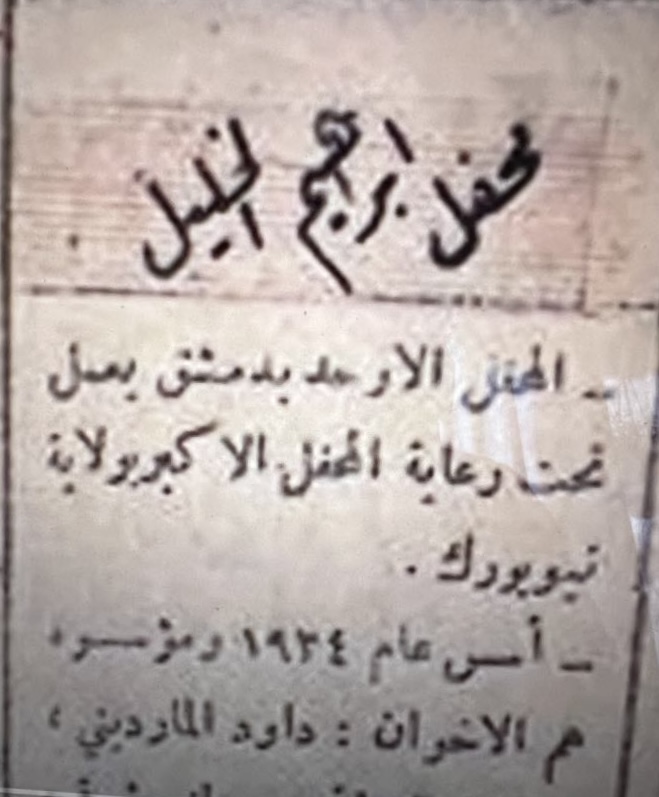 محفل ابراهيم الخليل
ـ المحفل الاوحد بدمشق يعمل
تحت رعاية المحفل الاكبر بولاية
نيويورك .
ـ أسس عام ١٩٢٤ ومؤسسوه
هم الاخوان : داود المارديني ،